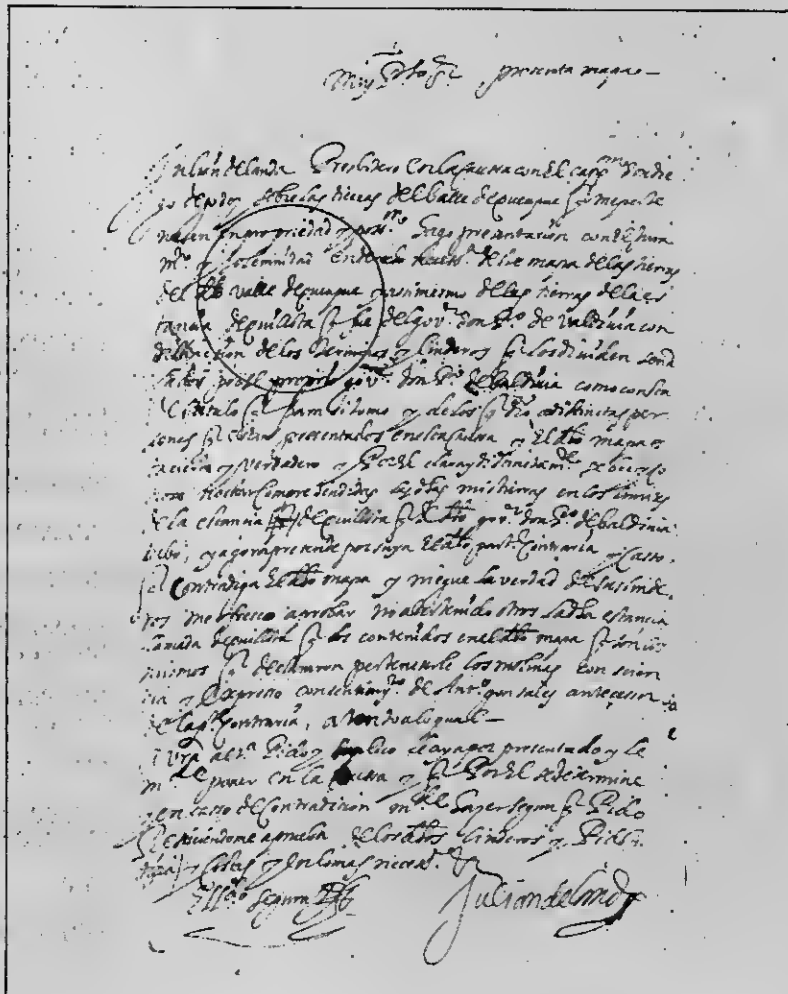 Muy P.so S.r presenta mapa
Julián de landa Presbitero en la causa con el cap.n don die
go de godoy sobre las tierras del balle de puragua q me perte
nesen en propriedad y pos.on hago presentación con el jura
m.to y solemnidad en derecho neces.a de este mapa de las tierras
del dho valle de y asimismo de las tierras de la es
tancia de quillota q fue del gov.or don P.o de valdiuia con
distinción de los terminos y linderos q los diuiden
por el proprio gov.or don P.o de baldiuia como consta
titulo q para si tomo y de los q dio a distintas per
sonas q estan presentados en esta causa y el dho mapa es
cierto y verdadero y por el clara y distintam.te se
no estar comprendidas las dhas mis tierras en los limites
de la estancia de quillota q el dho gov.or don P.o de baldiuia
tubo, y agora pretende por suya la dha part.e contraria y casso
q contradiga el dho mapa y niegue la verdad de sus linde
ros me ofresco a probar no aber tenido otros la dha estancia
llamada de quillota q los contenidos en el dho mapa q son los
mismos q declararon pertenecerle los mismos con scien
cia y expresso consentimy.to de Ant.o gonsales antecesor
de la p.te contraria, atento a lo qual
a V.ra al.a Pido y suplico le aya por presentado y le
m.de poner en la causa y q Por el se determine
y en casso de contradicion m.de hazer segun q Pido
Resiuiendome a prueba de los dhos linderos y Pido
y costas y en lo mas neces.o &
segura Julian de landa